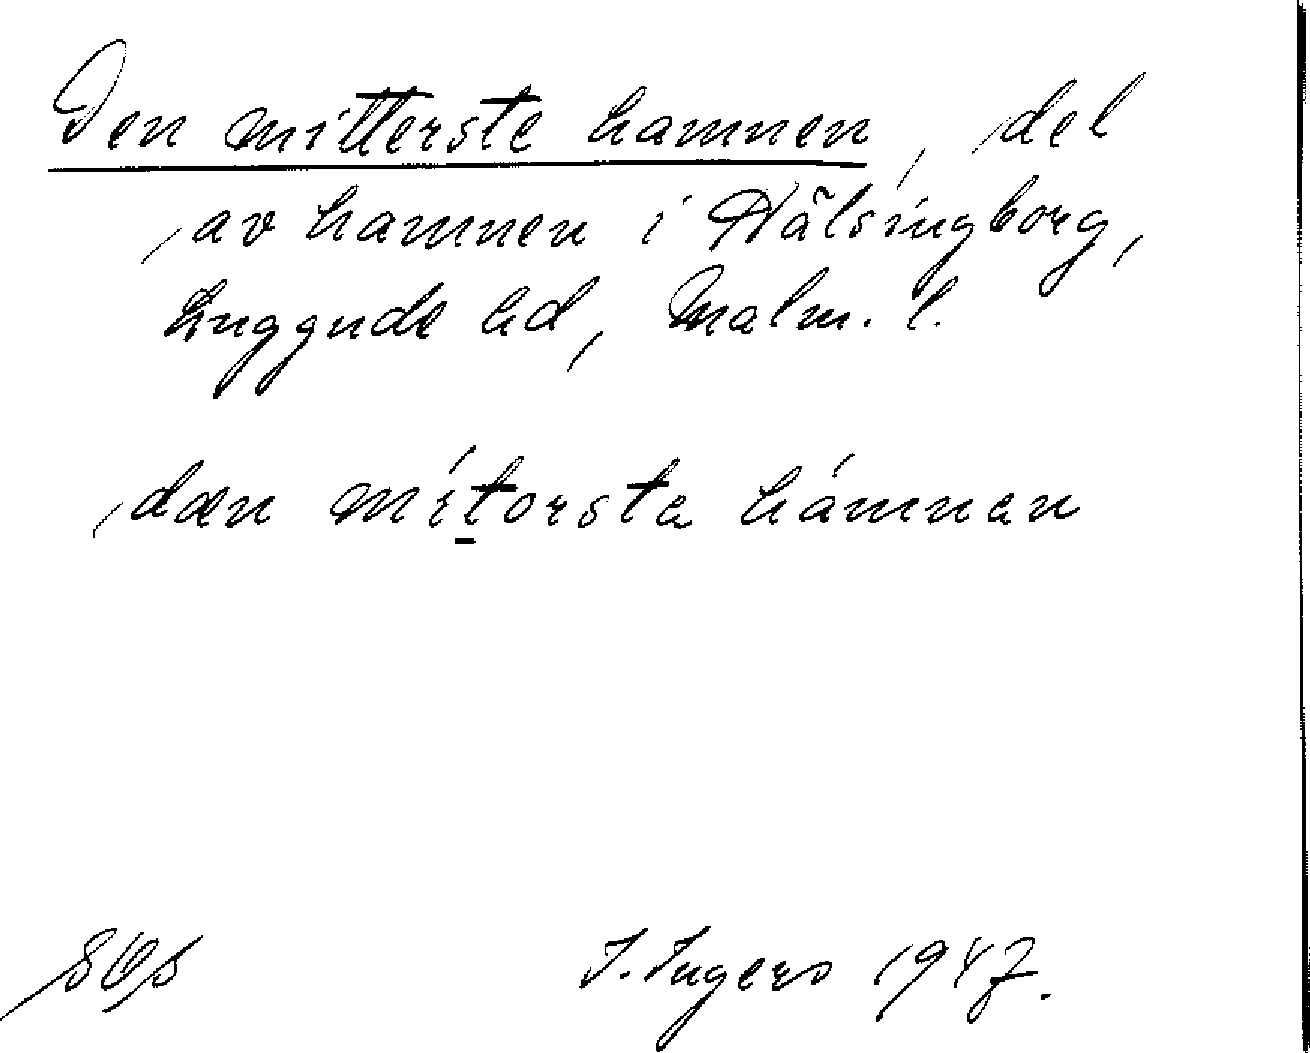 Den mitterste hamnen, del
av hamnen i Hälsingborg,
Luggude hd, Malm. l.
dæn mítorsta hámnan
I. Ingers 1947.